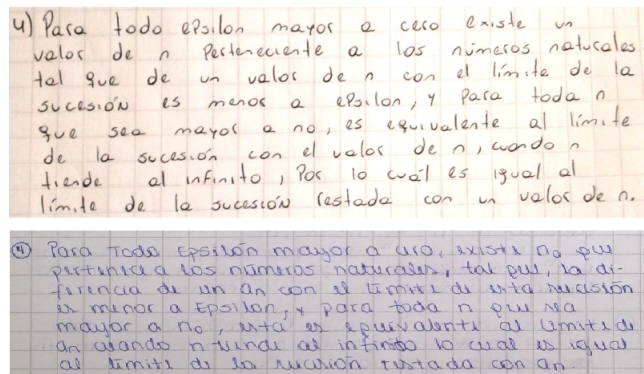 4) Para todo epsilon mayor a cero existe un
valor de n perteneciente a los números naturales
tal que de un valor de n con el límite de la
sucesión es menor a epsilon, y para toda n
que sea mayor a no, es equivalente al límite
de la sucesión con el valor de n, cuando n
tiende al infinito, por lo cuál es igual al
límite de la sucesión restada con un valor de n.
4 Para Todo Epsilón mayor a cero, existe no que
pertenezca a los números naturales, tal que, la di-
ferencia de un an con el límite de esta sucesión
es menor a Epsilon, y para toda n que sea
mayor a no, esta es equivalente al límite de
an cuando n tiende al infinito lo cual es igual
al límite de la sucesión restada con an.